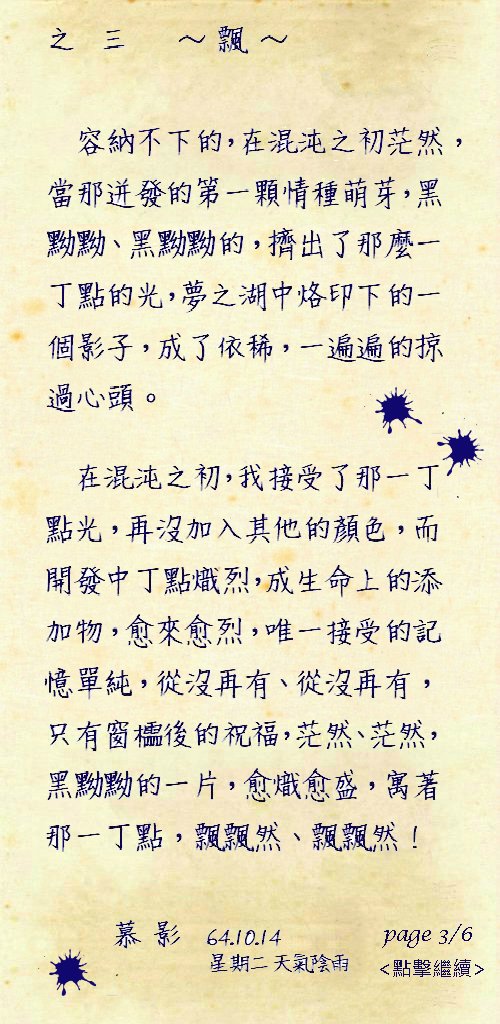 之三 ～飄～
容納不下的，在混沌之初茫然，
當那迸發的第一顆情種萌芽，黑
黝黝、黑黝黝的，擠出了那麼一
丁點的光，夢之湖中烙印下的一
個影子，成了依稀，一遍遍的掠
過心頭。
在混沌之初，我接受了那一丁
點光，再沒加入其他的顏色，而
開發中丁點熾烈，成生命上的添
加物，愈來愈烈，唯一接受的記
憶單純，從沒再有、從沒再有，
只有窗櫺後的祝福，茫然、茫然，
黑黝黝的一片，愈熾愈盛，寓著
那一丁點，飄飄然、飄飄然！
慕影 64.10.14
星期二 天氣陰雨
page 3/6
<點擊繼續>